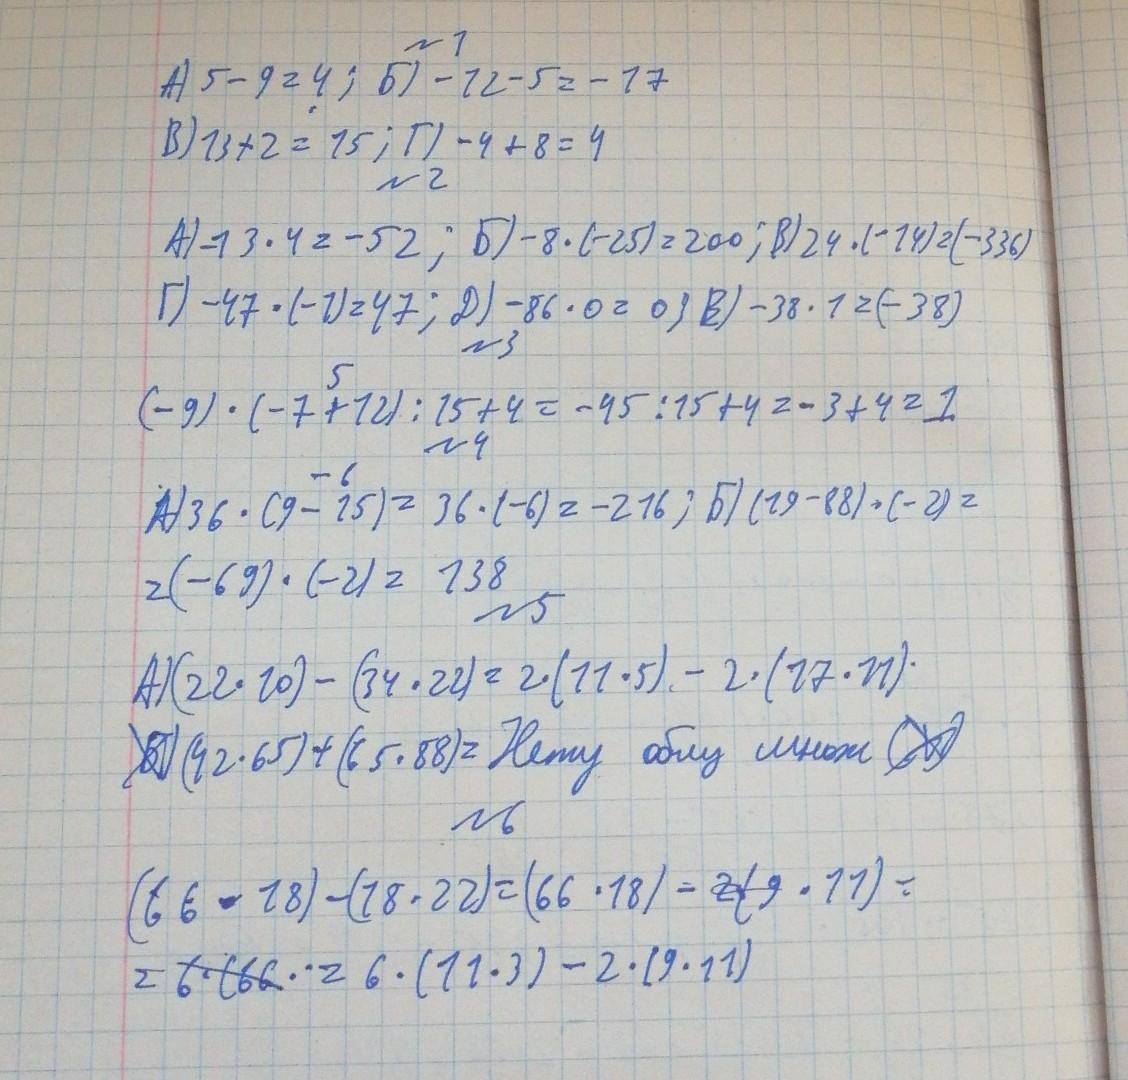 ~1
А) 5-9=4; Б) -12-5=-17
В) 13+2=15; Г) -4+8=4
~2
А) -13·4=-52; Б) -8·(-25)=200; В) 24·(-14)=(-336)
Г) -47·(-1)=47; Д) -86·0=0; В) -38·1=(-38)
~3
5
(-9)·(-7+12):15+4=-45:15+4=-3+4=1
~4
-6
А) 36·(9-15)=36·(-6)=-216; Б) (19-88)·(-2)=
=(-69)·(-2)=138
~5
А) (22·10)-(34·22)=2·(11·5)-2·(17·11)
Б) (42·65)+(65·88)=Нету общ множ
~6
(66·18)-(18·22)=(66·18)-2(9·11)=
=6·(66·=6·(11·3)-2·(9·11)